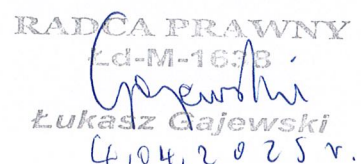 RADCA PRAWNY
Łd-M-1638
Gajewski
Łukasz Gajewski
4.04.2025 r